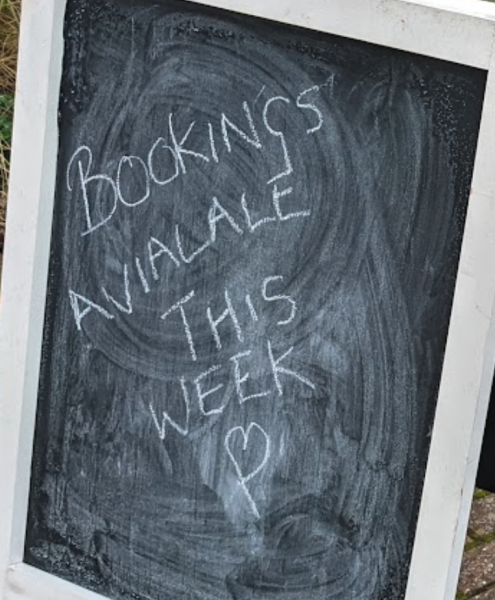 BOOKINGS
AVIALALE
THIS
WEEK